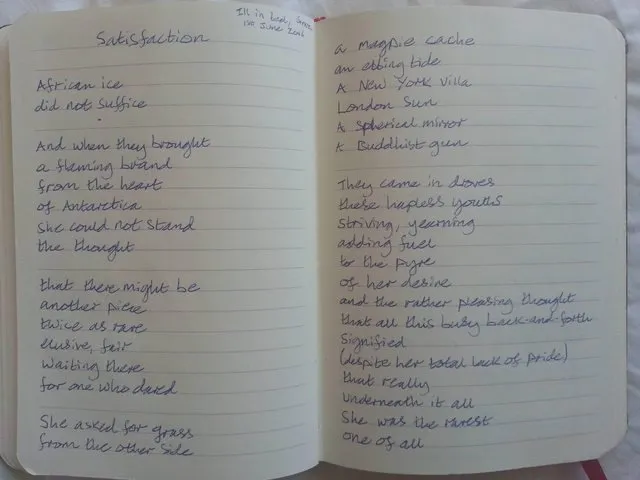 Ill in bed, Greece
June
Satisfaction
African ice
did not suffice
And when they brought
a flaming brand
from the heart
of Antarctica
she could not stand
the thought
that there might be
another piece
twice as rare
elusive, fair
waiting there
for one who dared
She asked for grass
from the other side
a magpie cache
an ebbing tide
A New York Villa
London Sun
A Spherical mirror
A Buddhist gun
They came in droves
these hapless youths
striving, yearning
adding fuel
to the pyre
of her desire
and the rather pleasing thought
that all this busy back-and-forth
Signified
(despite her total lack of pride)
that really
underneath it all
She was the rarest
one of all